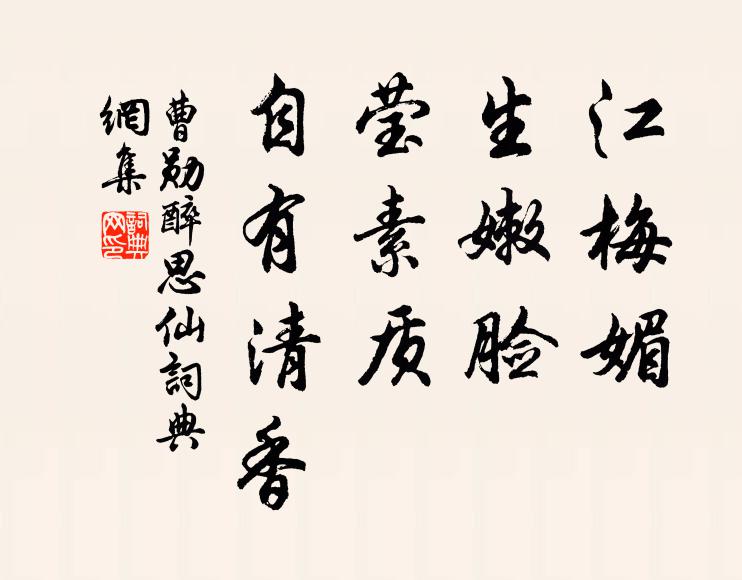 江梅媚
生嫩脸
莹素质
自有清香
曹勋醉思仙詞典
網集
詞典
网印